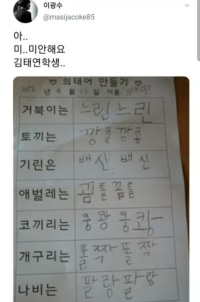 이광수
@masijacoke85
아..
미..미안해요
김태연학생..
의태어 만들기
거북이는 느린느린
토끼는 깡총깡총
기린은 배신 배신
애벌레는 꿈틀꿈틀
코끼리는 쿵쾅쿵쾅
개구리는 폴짝폴짝
나비는 팔랑팔랑